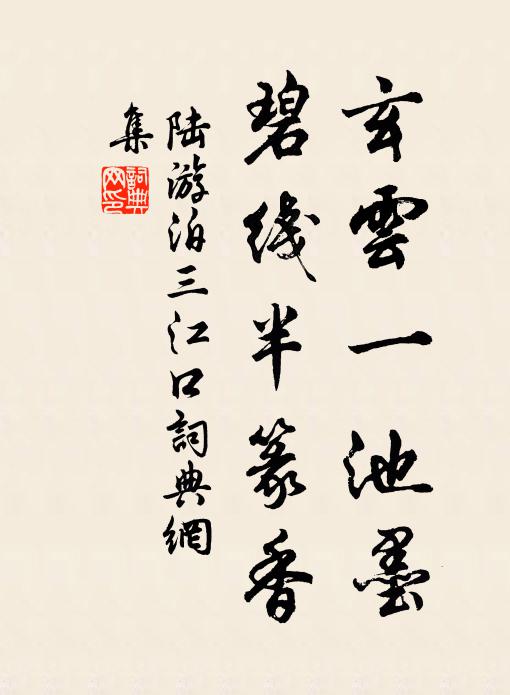 玄雲一池墨
碧綫半篆香
陆游泊三江口詞典網
集
詞典网印